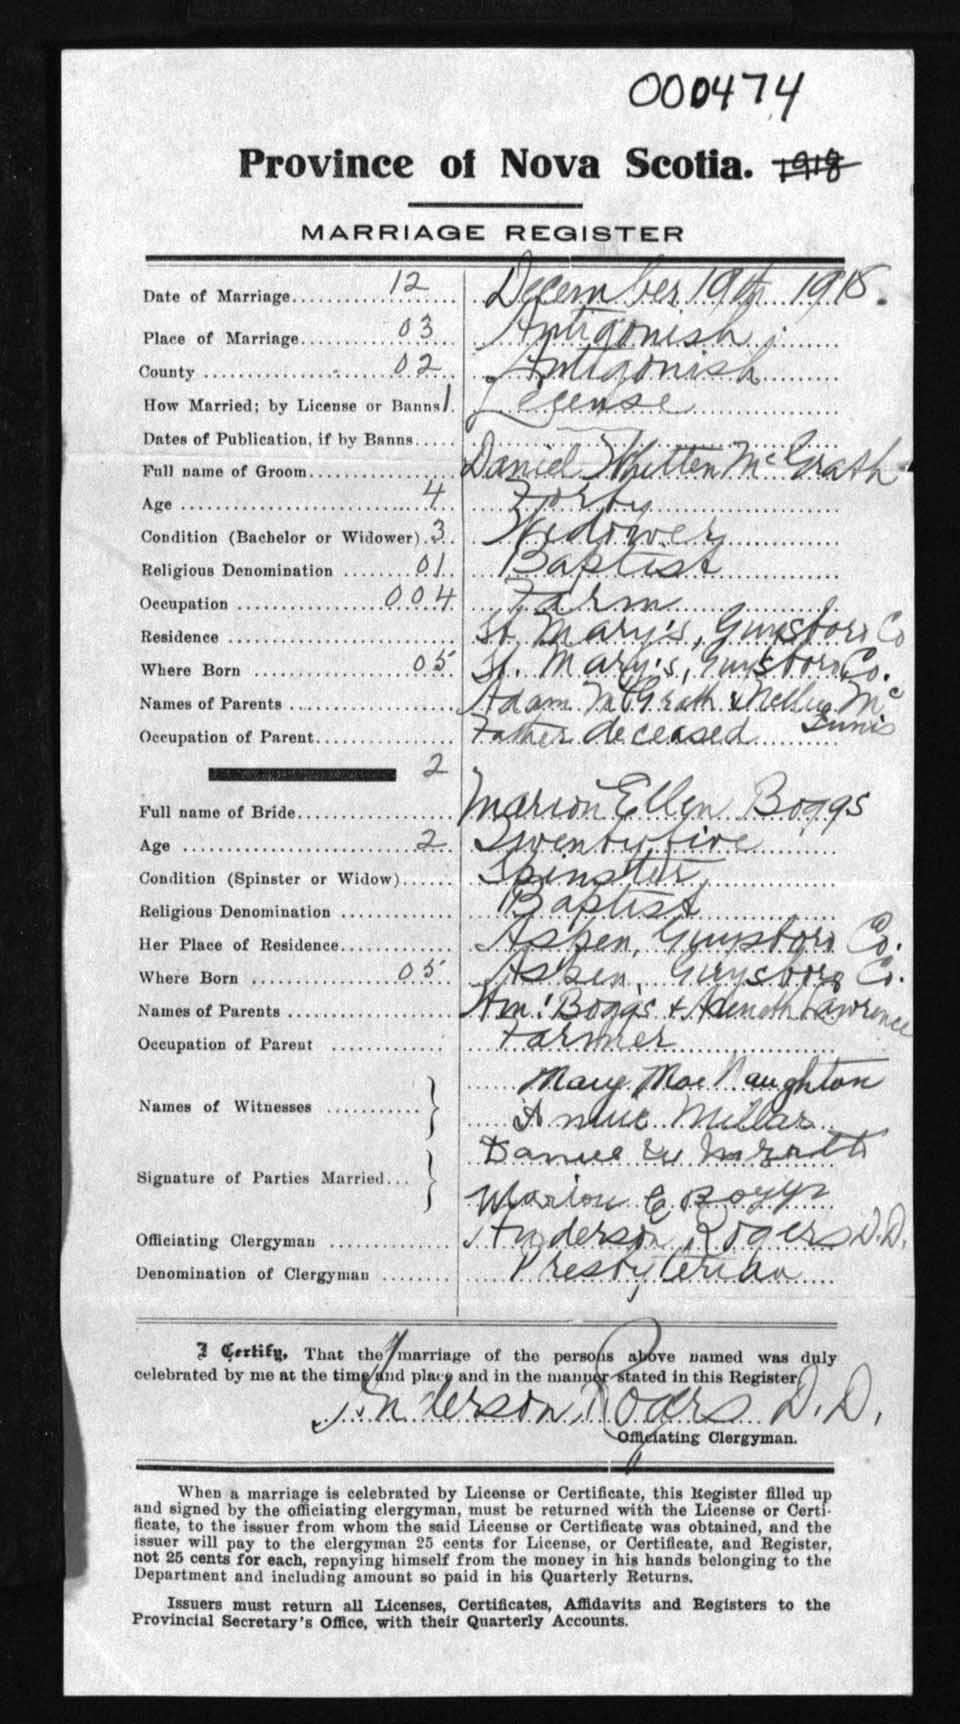 000474
Province of Nova Scotia. 1918
MARRIAGE REGISTER
Date of Marriage 12 December 19th 1918.
Place of Marriage 03 Antigonish
County 02 Antigonish
How Married; by License or Banns 1 License
Dates of Publication, if by Banns
Full name of Groom Daniel Whitten McGrath
Age 4 Forty
Condition (Bachelor or Widower) 3 Widower
Religious Denomination 01 Baptist
Occupation 004 Farm
Residence St. Mary's, Guysboro Co
Where Born 05 St. Mary's, Guysboro Co.
Names of Parents Adam McGrath & Nellie Mc
Occupation of Parent Father deceased
2
Full name of Bride Marion Ellen Boggs
Age 2 Twenty five
Condition (Spinster or Widow) Spinster
Religious Denomination Baptist
Her Place of Residence Aspen, Guysboro Co.
Where Born 05 Aspen, Guysboro Co.
Names of Parents Wm. Boggs & Lawrence
Occupation of Parent Farmer
Names of Witnesses Mary MacNaughton
Annie Millar
Signature of Parties Married Daniel W McGrath
Marion E Boggs
Officiating Clergyman Anderson Rogers D.D.
Denomination of Clergyman Presbyterian
I Certify, That the marriage of the persons above named was duly
celebrated by me at the time and place and in the manner stated in this Register
Anderson Rogers D.D.
Officiating Clergyman.
When a marriage is celebrated by License or Certificate, this Register filled up
and signed by the officiating clergyman, must be returned with the License or Certi-
ficate, to the issuer from whom the said License or Certificate was obtained, and the
issuer will pay to the clergyman 25 cents for License, or Certificate, and Register,
not 25 cents for each, repaying himself from the money in his hands belonging to the
Department and including amount so paid in his Quarterly Returns.
Issuers must return all Licenses, Certificates, Affidavits and Registers to the
Provincial Secretary's Office, with their Quarterly Accounts.